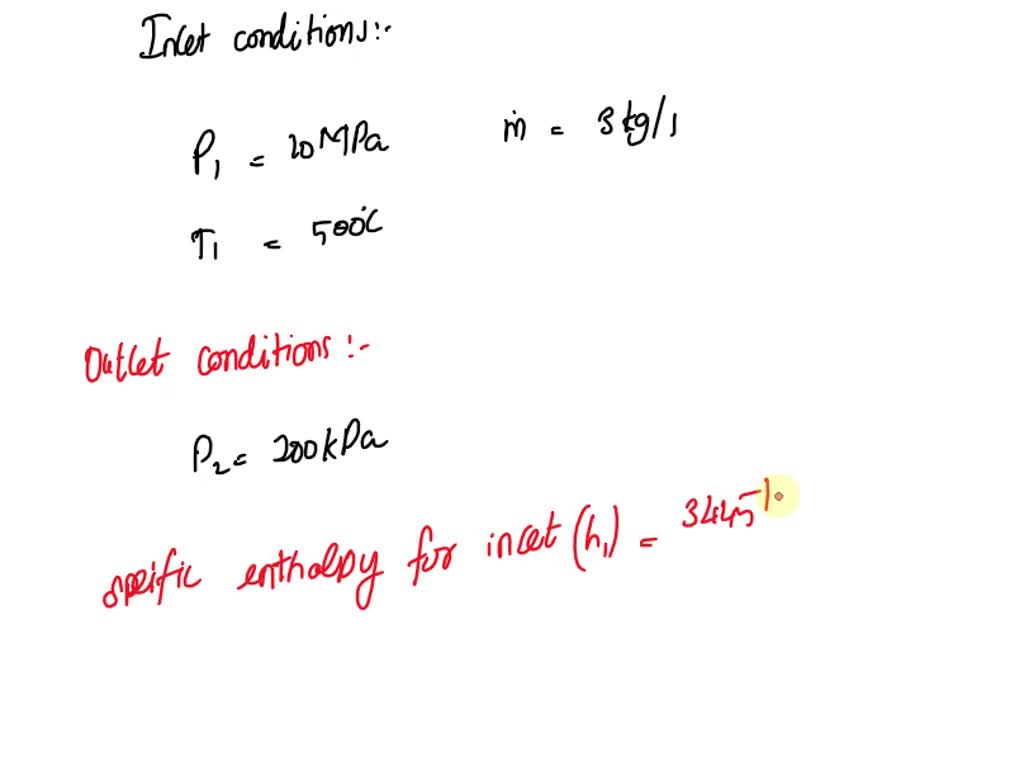 Inlet conditions:-
P1 = 10 MPa
ṁ = 3 kg/s
T1 = 500°C
Outlet conditions :-
P2 = 200 kPa
specific enthalpy for inlet (h1) = 3445